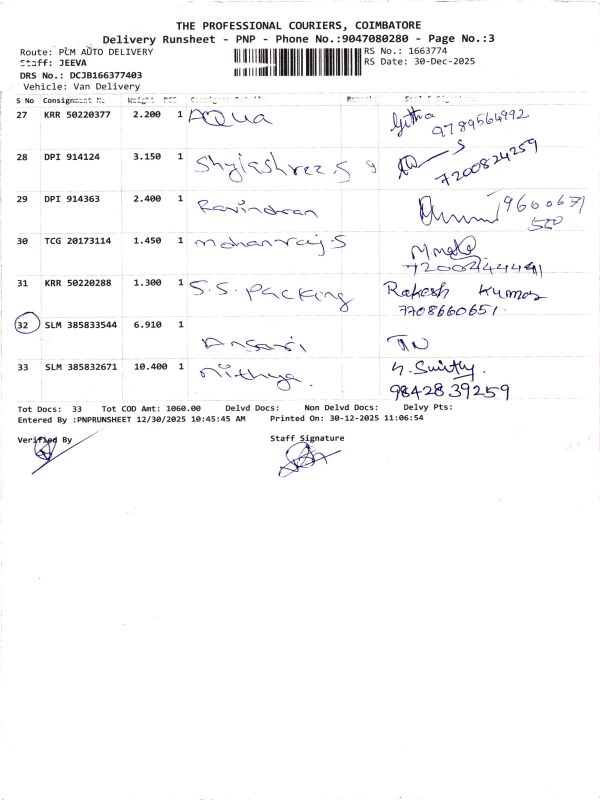 THE PROFESSIONAL COURIERS, COIMBATORE
Delivery Runsheet - PNP - Phone No.:9047080280 - Page No.:3
Route: PCM AUTO DELIVERY
RS No.: 1663774
Staff: JEEVA
RS Date: 30-Dec-2025
DRS No.: DCJB166377403
Vehicle: Van Delivery
S No Consignment No Weight PCS
27 KRR 50220377 2.200 1 AQUA Githa 9789564992
28 DPI 914124 3.150 1 Shylashree.S 9 S 7200824259
29 DPI 914363 2.400 1 Ravindran 9600671
550
30 TCG 20173114 1.450 1 mohanraj.S
31 KRR 50220288 1.300 1 S.S.Packing Rakesh Kumar
7708660651.
32 SLM 385833544 6.910 1 Ansari
33 SLM 385832671 10.400 1 Nithya.
9842839259
Tot Docs: 33 Tot COD Amt: 1060.00 Delvd Docs: Non Delvd Docs: Delvy Pts:
Entered By :PNPRUNSHEET 12/30/2025 10:45:45 AM Printed On: 30-12-2025 11:06:54
Verified By Staff Signature